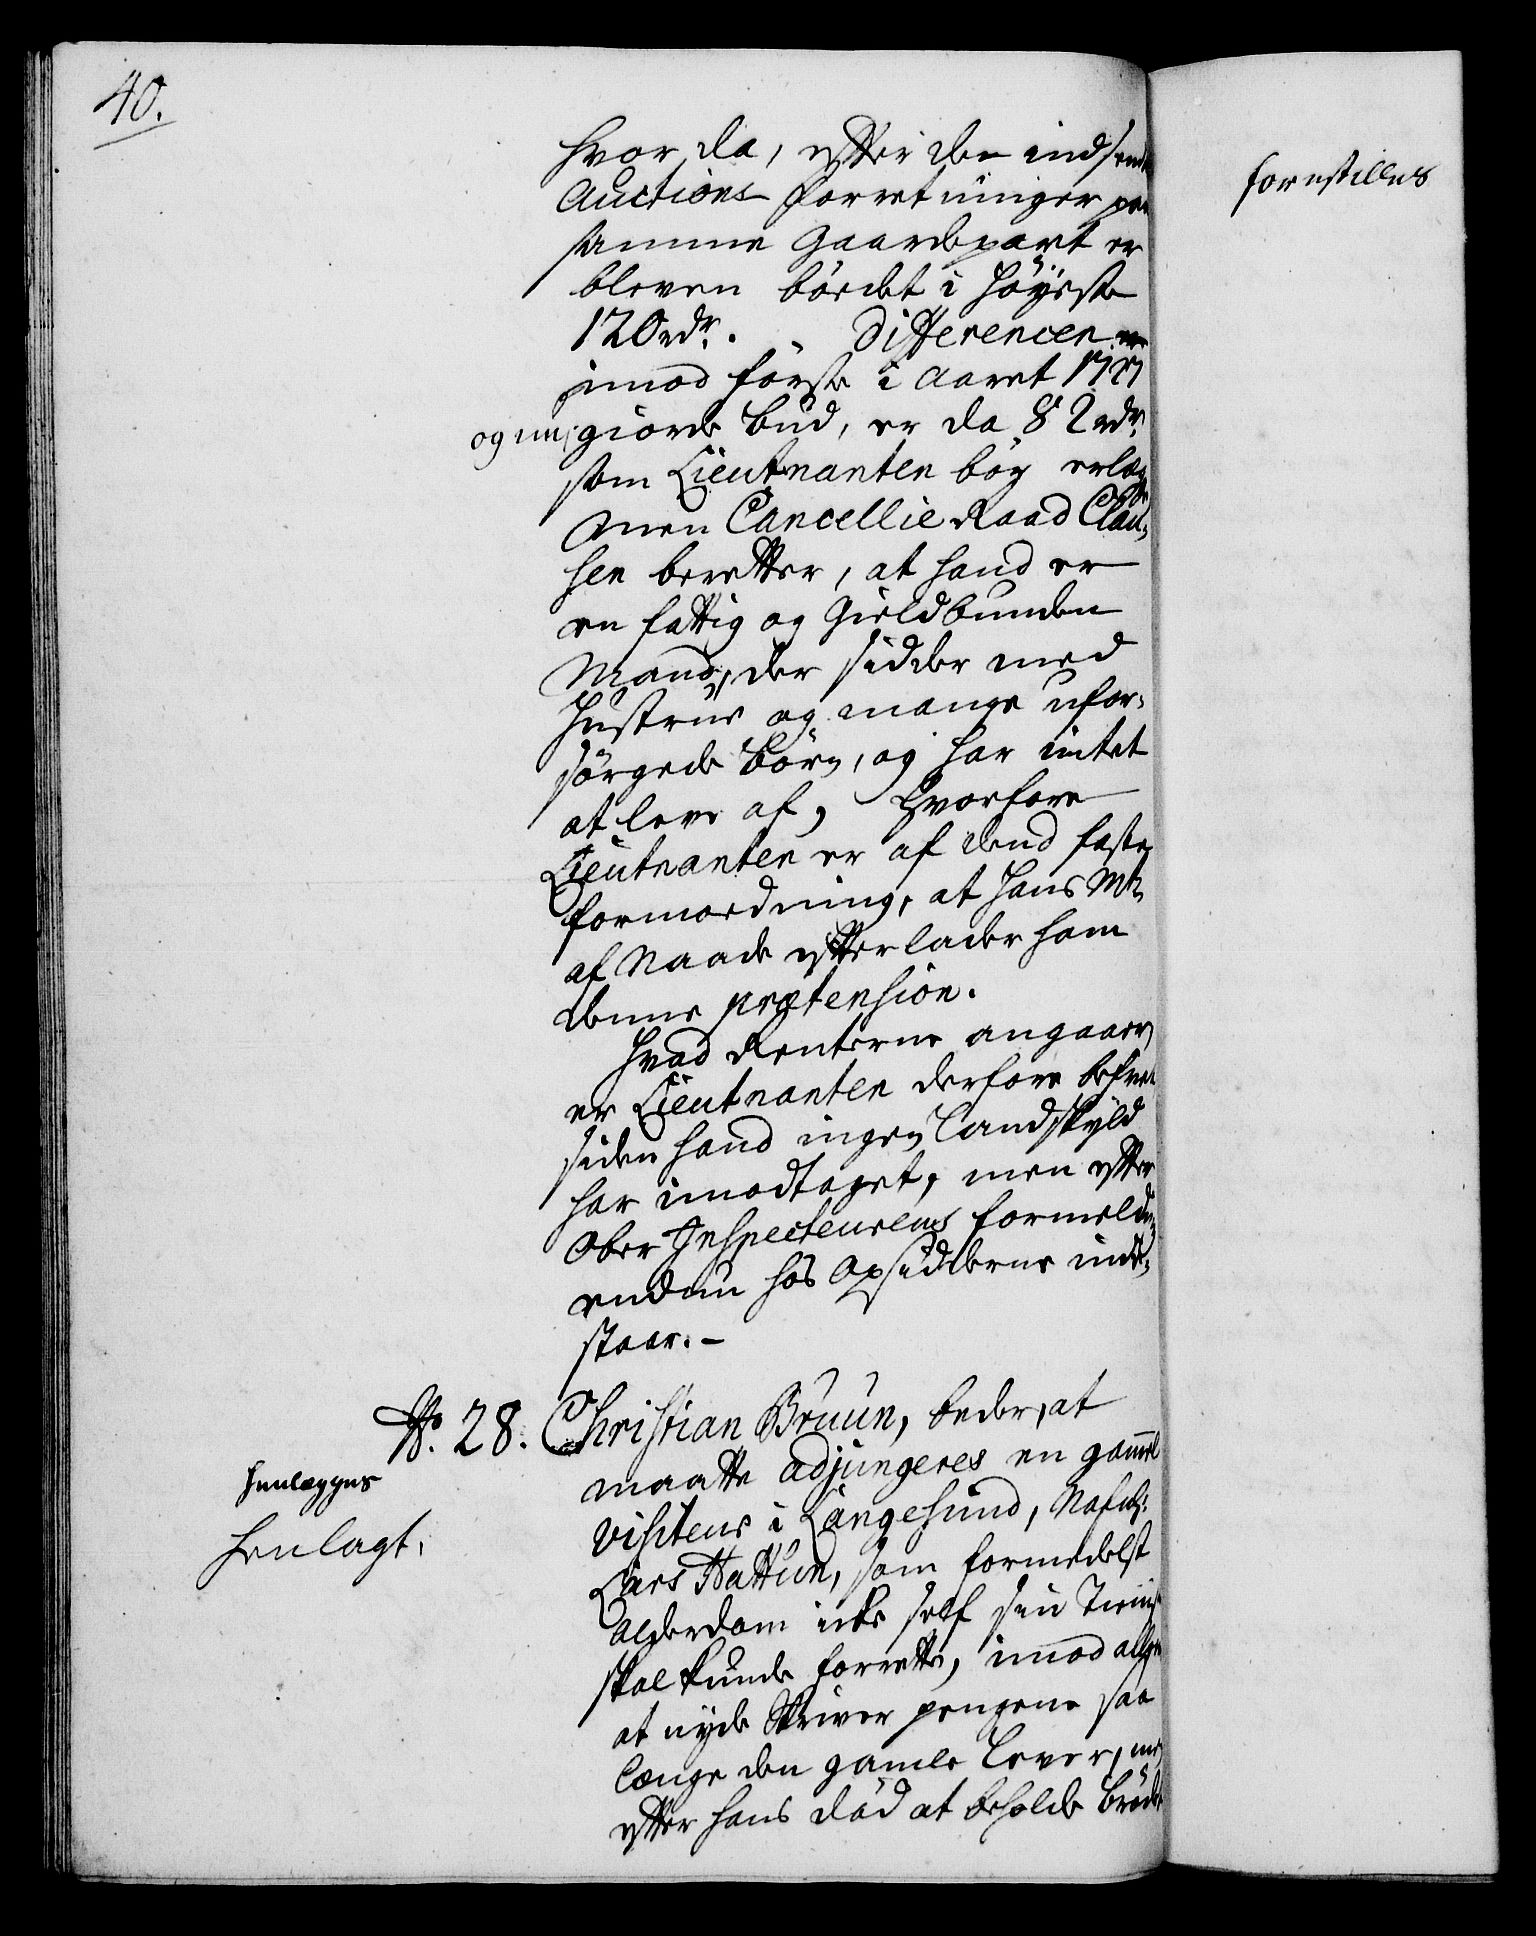 40.
hvor da, efter de indsendte
Auctions Forretninger paa
samme Gaardepart er
bleven bödet i Höyeste
120 rdr. Differencen
imod förste i Aaret 1727
og nu, giorde bud, er da 82 rdr.
som Lieutnanten bör erlægge
Men Cancellie Raad Clau-
sen beretter, at hand er
en fattig og Gieldbunden
Mand, der sidder med
Hustrue og mange ufor-
sörgede börn, og har intet
at leve af, hvorfore
Lieutnanten er af dend faste
formoedning, at Hans Mt.
af Naade efterlader ham
denne prætension.
Hvad Renterne angaaer,
er Lieutnanten derfore befriet
siden hand ingen Landskyld
har imodtaget, men efter
Ober Inspecteurens formelding
endnu hos Opsidderne inde-
staar. -
No. 28. Christian Bruun, beder, at
maatte adjungeres en gammel
Visiteur i Langesund, Nafnl:
Lars Hattun, som formedelst
Alderdom icke self sin Tieniste
skal kunde forrette, imod alene
at nyde Skriver pengene saa
længe den gamle lever, men
efter hans död at beholde brödet
henlægges
henlagt.
forestilles